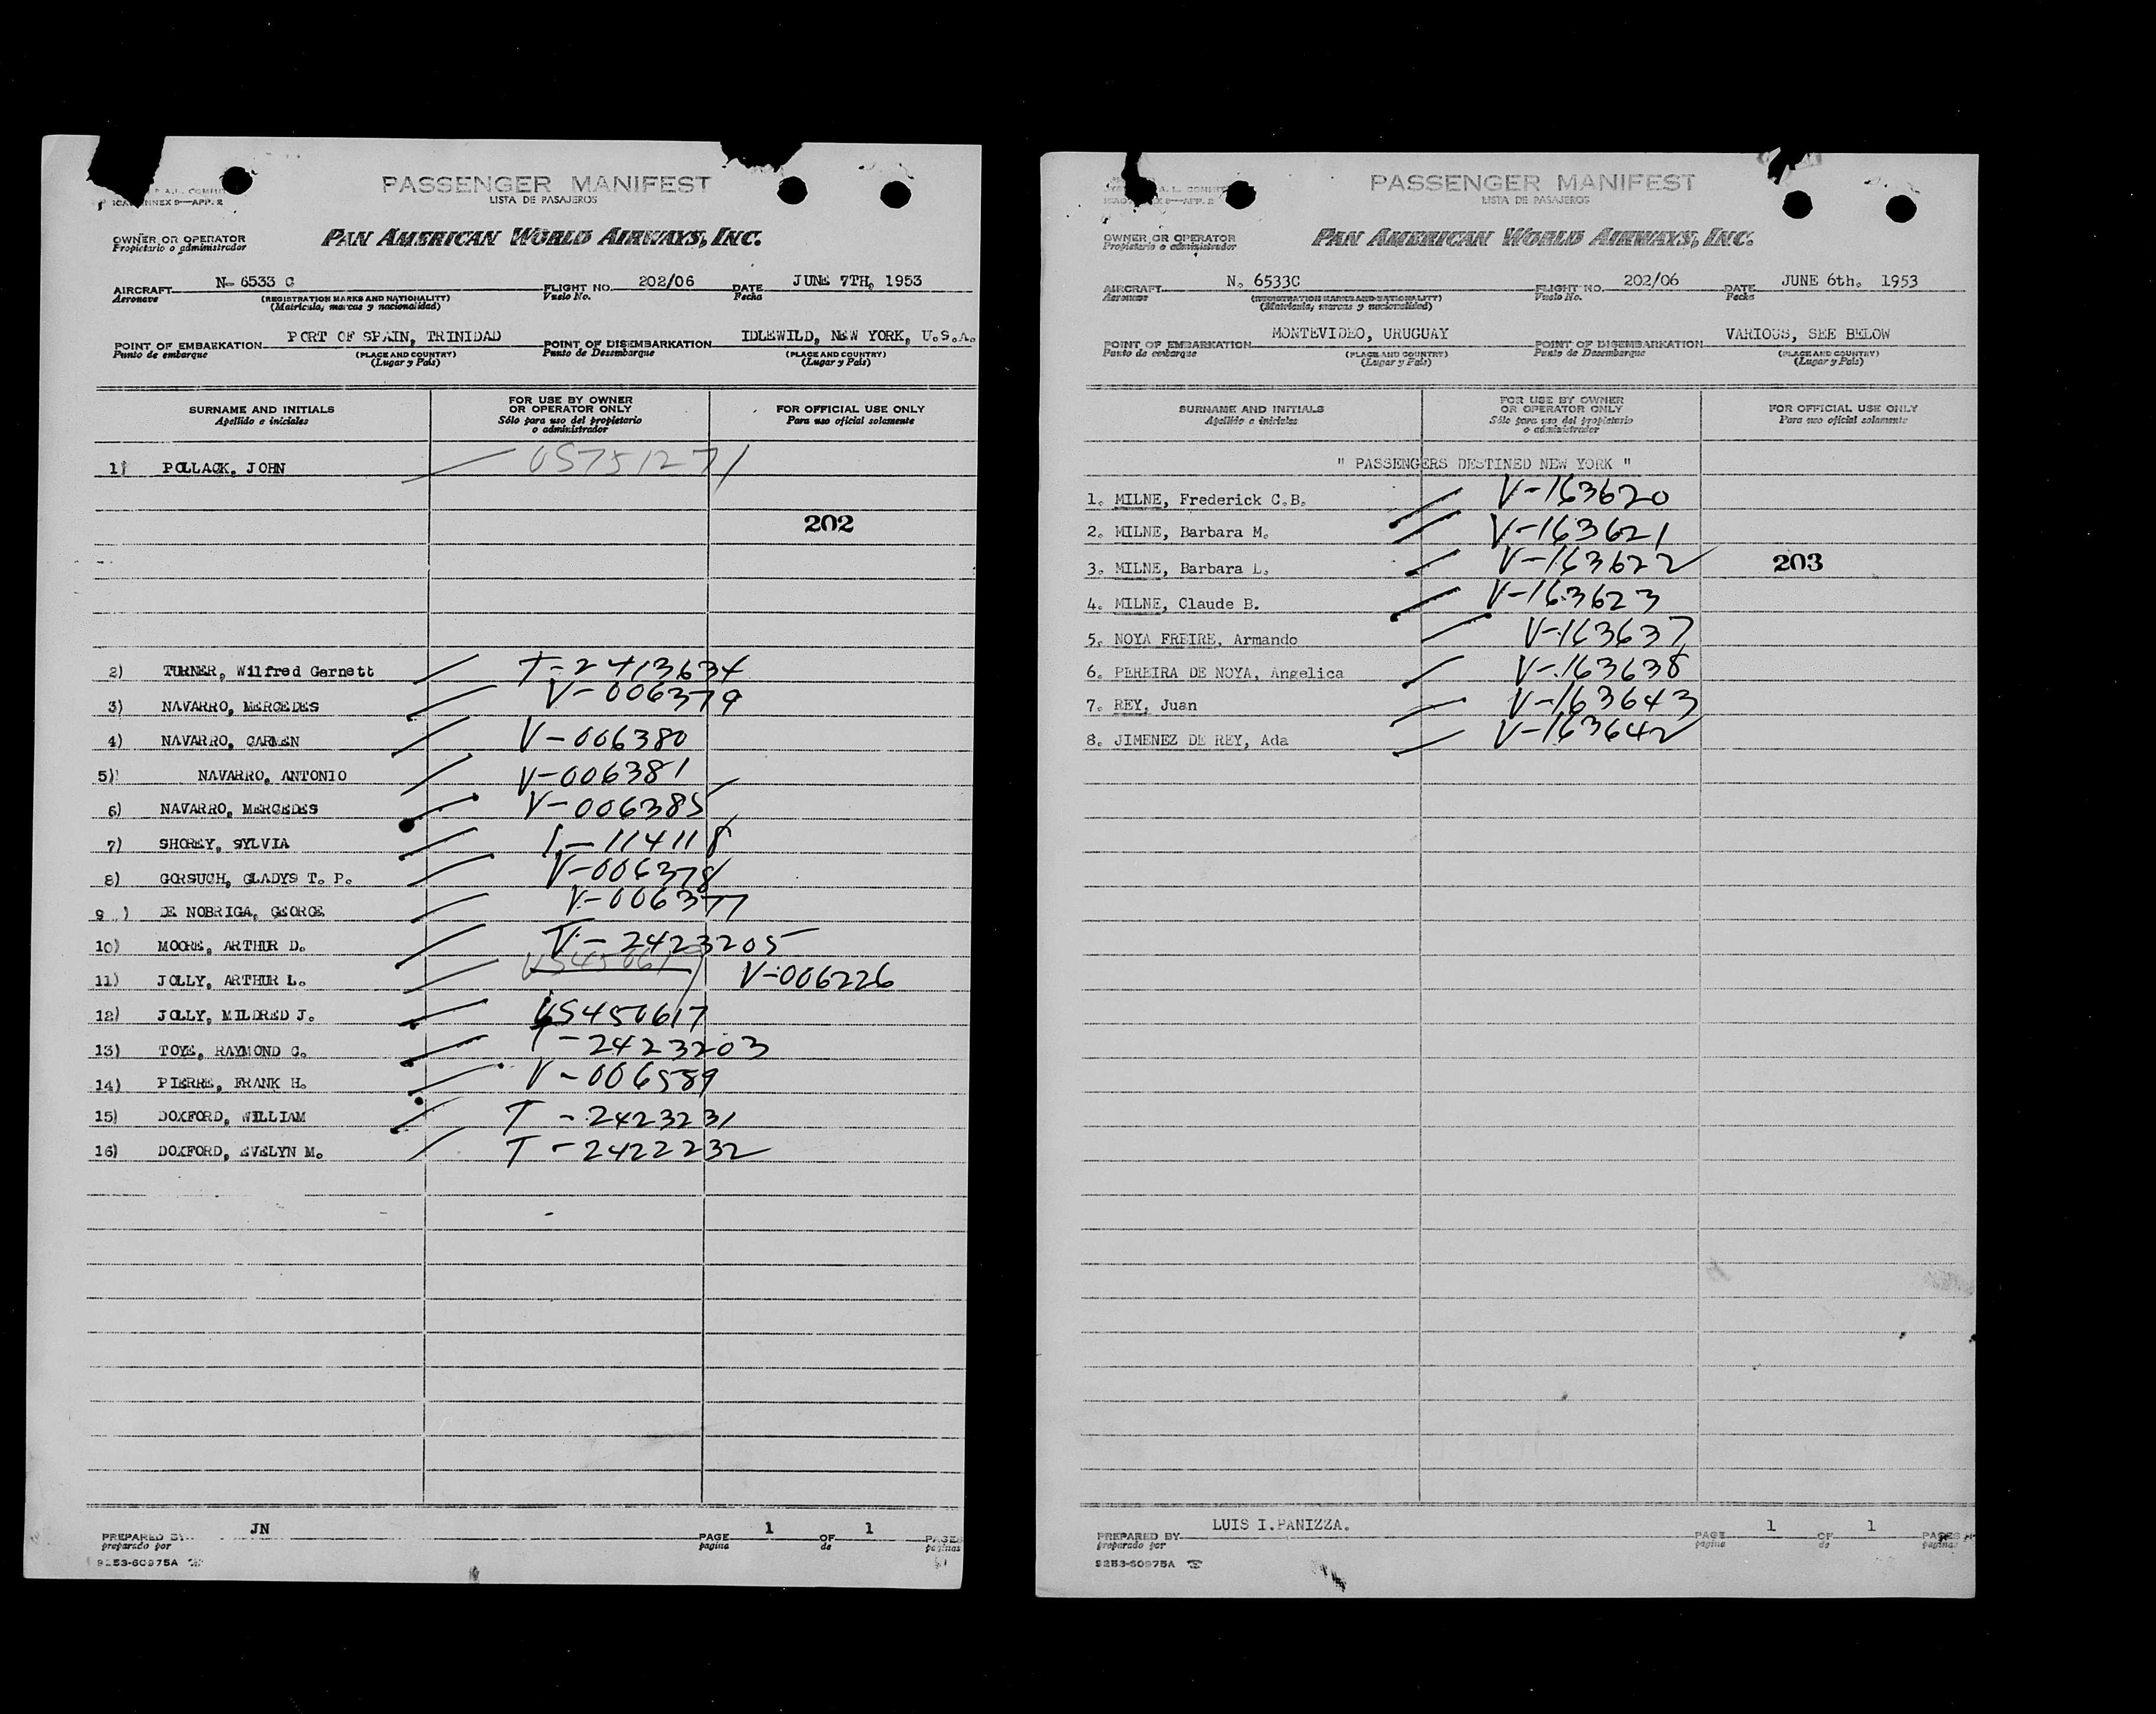 PASSENGER MANIFEST
LISTA DE PASAJEROS
ANNEX 9—APP. 2
OWNER OR OPERATOR
Propietario o administrador
PAN AMERICAN WORLD AIRWAYS, INC.
AIRCRAFT N- 6533 C FLIGHT NO. 202/06 DATE JUNE 7TH, 1953
Aeronave (REGISTRATION MARKS AND NATIONALITY) Vuelo No. Fecha
(Matrícula, marcas y nacionalidad)
POINT OF EMBARKATION PORT OF SPAIN, TRINIDAD POINT OF DISEMBARKATION IDLEWILD, NEW YORK, U.S.A.
Punto de embarque (PLACE AND COUNTRY) Punto de Desembarque (PLACE AND COUNTRY)
(Lugar y País) (Lugar y País)
SURNAME AND INITIALS FOR USE BY OWNER OR OPERATOR ONLY FOR OFFICIAL USE ONLY
Apellido e iniciales Sólo para uso del propietario o administrador Para uso oficial solamente
1) POLLACK, JOHN US751271
202
2) TURNER, Wilfred Garnett T-2413634
3) NAVARRO, MERCEDES V-006379
4) NAVARRO, CARMEN V-006380
5) NAVARRO, ANTONIO V-006381
6) NAVARRO, MERCEDES V-006385
7) SHOREY, SYLVIA I-114118
8) GORSUCH, GLADYS T. P. V-006378
9 ) DE NOBRIGA, GEORGE V-006377
10) MOORE, ARTHUR D. T-2423205
11) JOLLY, ARTHUR L. V-006226
12) JOLLY, MILDRED J. US450617
13) TOYE, RAYMOND C. T-2423203
14) PIERRE, FRANK H. V-006589
15) DOXFORD, WILLIAM T-2423231
16) DOXFORD, EVELYN M. T-2422232
PREPARED BY JN PAGE 1 OF 1 PAGES
preparado por pagina de paginas
9253-60975A
PASSENGER MANIFEST
LISTA DE PASAJEROS
OWNER OR OPERATOR
Propietario o administrador
PAN AMERICAN WORLD AIRWAYS, INC.
AIRCRAFT N. 6533C FLIGHT NO. 202/06 DATE JUNE 6th. 1953
Aeronave (REGISTRATION MARKS AND NATIONALITY) Vuelo No. Fecha
(Matrícula, marcas y nacionalidad)
POINT OF EMBARKATION MONTEVIDEO, URUGUAY POINT OF DISEMBARKATION VARIOUS, SEE BELOW
Punto de embarque (PLACE AND COUNTRY) Punto de Desembarque (PLACE AND COUNTRY)
(Lugar y País) (Lugar y País)
SURNAME AND INITIALS FOR USE BY OWNER OR OPERATOR ONLY FOR OFFICIAL USE ONLY
Apellido e iniciales Sólo para uso del propietario o administrador Para uso oficial solamente
" PASSENGERS DESTINED NEW YORK "
1. MILNE, Frederick C.B. V-163620
2. MILNE, Barbara M. V-163621
3. MILNE, Barbara L. V-163622 203
4. MILNE, Claude B. V-163623
5. NOYA FREIRE, Armando V-163637
6. PEREIRA DE NOYA, Angelica V-163638
7. REY, Juan V-163643
8. JIMENEZ DE REY, Ada V-163642
PREPARED BY LUIS I.PANIZZA. PAGE 1 OF 1 PAGES
preparado por pagina de paginas
9253-60975A